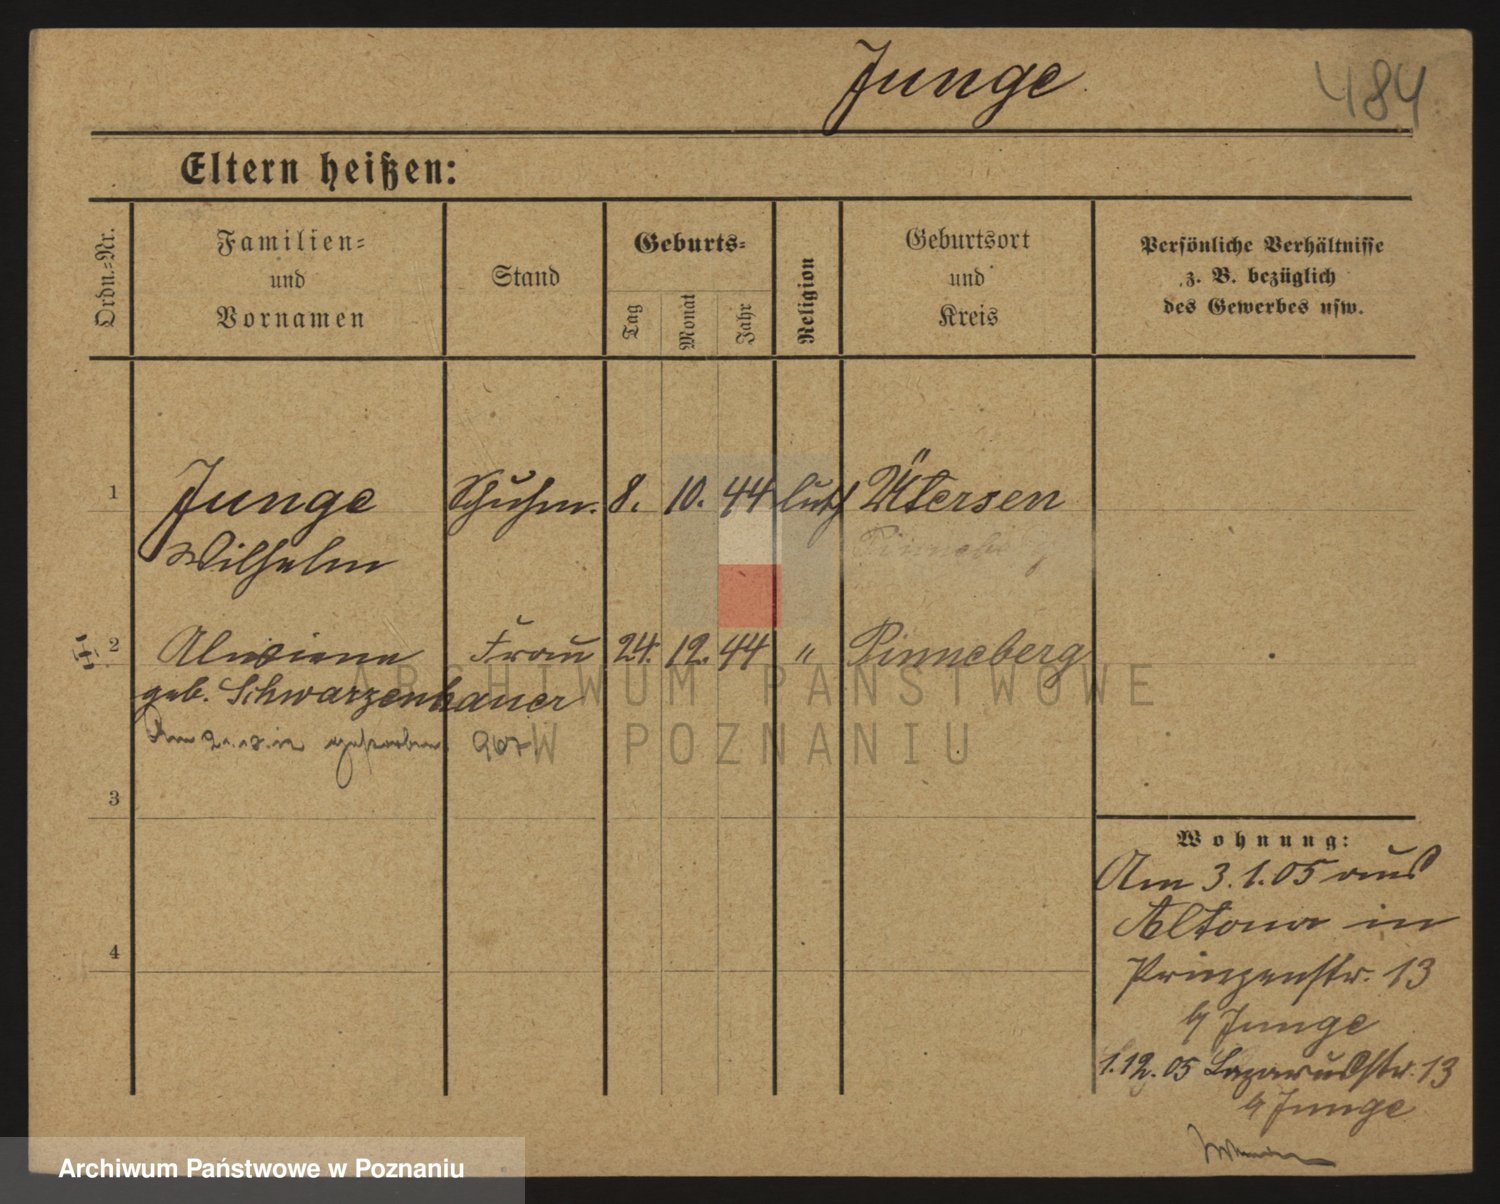 Junge
484
Eltern heißen:
Ordn.-Nr.
Familien-
und
Vornamen
Stand
Geburts-
Tag
Monat
Jahr
Religion
Geburtsort
und
Kreis
Persönliche Verhältnisse
z. B. bezüglich
des Gewerbes usw.
1 Junge Schuhm. 8. 10. 44 luth Ütersen
Wilhelm Pinneberg
2 Alwiene Frau 24. 12. 44 " Pinneberg
geb. Schwarzenhauer
Am gestorben
3
4
Wohnung:
Am 3.1.05 aus
Altona in
Prinzenstr. 13
b/ Junge
1.12.05 Lazarusstr. 13
b/ Junge
ARCHIWUM PAŃSTWOWE
W POZNANIU
Archiwum Państwowe w Poznaniu